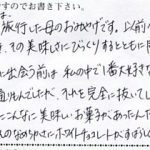 すのでお書き下さい。
は。
旅行した母のおみやげです。以前
その美味しさにびっくりするとともに
に出会う前は私の中で1番大好き
んでしたが、それを完全に抜いてし
こんなに美味しいお菓子があったんだ
のなめらかさにホワイトチョコレートがまずは